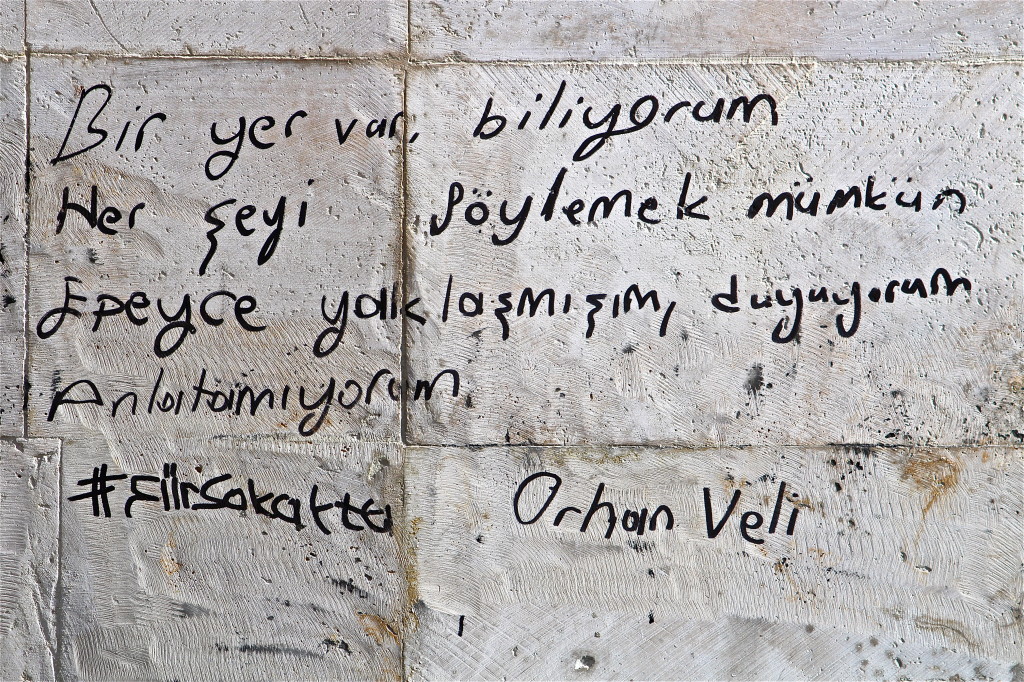 Bir yer var, biliyorum
Her şeyi söylemek mümkün
Epeyce yaklaşmışım, duyuyorum
Anlatamıyorum.
#şiirsokakta Orhan Veli